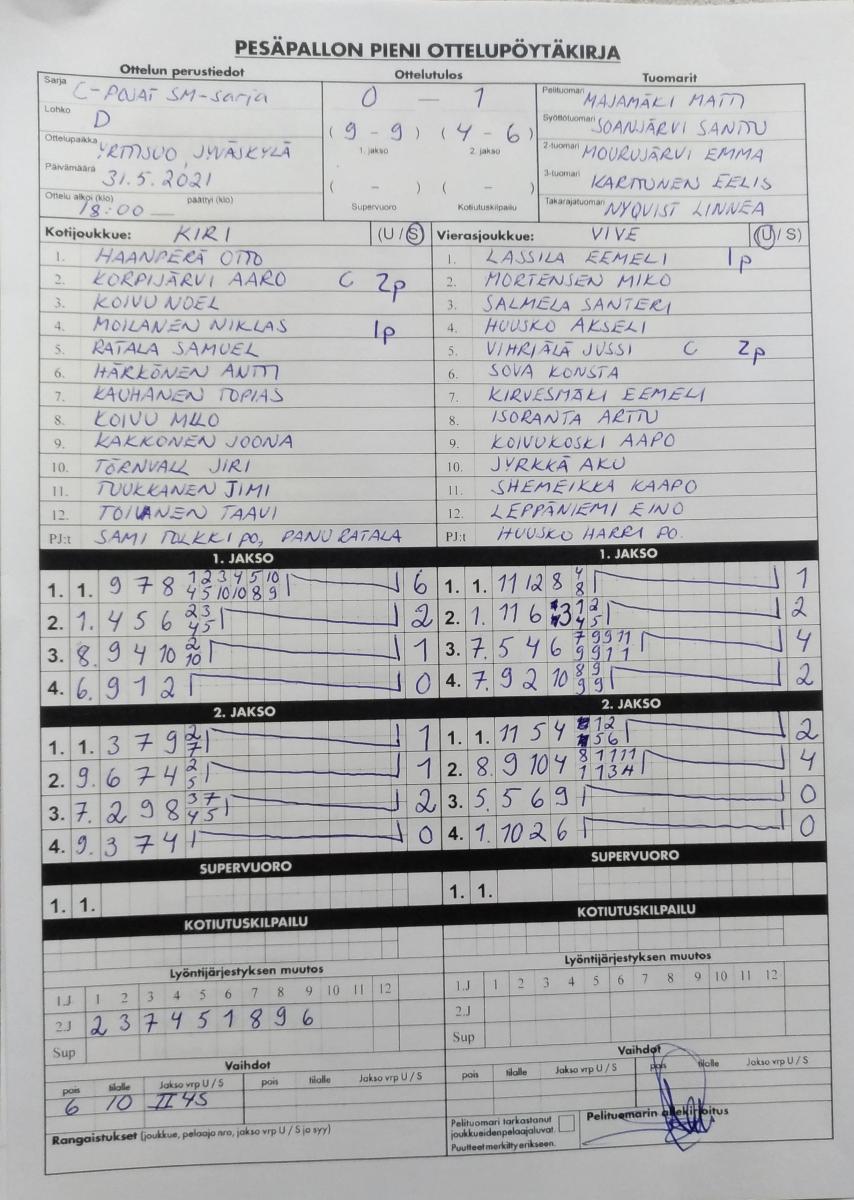 PESÄPALLON PIENI OTTELUPÖYTÄKIRJA
Ottelun perustiedot Ottelutulos Tuomarit
Sarja C-POJAT SM-sarja 0 — 1 Pelituomari MAJAMÄKI MATTI
Lohko D (9 - 9) (4 - 6) Syöttötuomari SOANJÄRVI SANTTU
Ottelupaikka YRTTISUO, JYVÄSKYLÄ 1. jakso 2. jakso 2-tuomari MOURUJÄRVI EMMA
Päivämäärä 31.5.2021 ( - ) ( - ) 3-tuomari KARTTUNEN EELIS
Ottelu alkoi (klo) 18:00 — päättyi (klo) Supervuoro Kotiutuskilpailu Takarajatuomari NYQVIST LINNEA
Kotijoukkue: KIRI (U / S) Vierasjoukkue: VIVE (U / S)
1. HAANPERÄ OTTO 1. LASSILA EEMELI 1p
2. KORPIJÄRVI AARO C 2p 2. MORTENSEN MIKO
3. KOIVU NOEL 3. SALMELA SANTERI
4. MOILANEN NIKLAS 1p 4. HUUSKO AKSELI
5. RATALA SAMUEL 5. VIHRIÄLÄ JUSSI C 2p
6. HÄRKÖNEN ANTTI 6. SOVA KONSTA
7. KAUHANEN TOPIAS 7. KIRVESMÄKI EEMELI
8. KOIVU MILO 8. ISORANTA ARTTU
9. KAKKONEN JOONA 9. KOIVUKOSKI AAPO
10. TÖRNVALL JIRI 10. JYRKKÄ AKU
11. TUUKKANEN JIMI 11. SHEMEIKKA KAAPO
12. TOIVANEN TAAVI 12. LEPPÄNIEMI EINO
PJ:t SAMI TOLKKI PO, PANU RATALA PJ:t HUUSKO HARRI PO.
1. JAKSO 1. JAKSO
1. 1. 9 7 8 1 2 3 4 5 10 6 1. 1. 11 12 8 4 1
4 5 10 10 8 9 8
2. 1. 4 5 6 2 3 2 2. 1. 11 6 3 1 2 2
4 5 4 5
3. 8. 9 4 10 2 1 3. 7. 5 4 6 7 9 9 11 4
10 9 9 1 1
4. 6. 9 1 2 0 4. 7. 9 2 10 8 9 2
9 9
2. JAKSO 2. JAKSO
1. 1. 3 7 9 2 1 1. 1. 11 5 4 1 2 2
7 5 6
2. 9. 6 7 4 2 1 2. 8. 9 10 4 8 1 11 1 4
5 1 1 3 4
3. 7. 2 9 8 3 7 2 3. 5. 5 6 9 0
4 5
4. 9. 3 7 4 0 4. 1. 10 2 6 0
SUPERVUORO SUPERVUORO
1. 1. 1. 1.
KOTIUTUSKILPAILU KOTIUTUSKILPAILU
Lyöntijärjestyksen muutos Lyöntijärjestyksen muutos
1.J 1 2 3 4 5 6 7 8 9 10 11 12 1.J 1 2 3 4 5 6 7 8 9 10 11 12
2.J 2 3 7 4 5 1 8 9 6 2.J
Sup Sup
Vaihdot Vaihdot
pois tilalle Jakso vrp U / S pois tilalle Jakso vrp U / S pois tilalle Jakso vrp U / S pois tilalle Jakso vrp U / S
6 10 II 4S
Rangaistukset (joukkue, pelaaja nro, jakso vrp U / S ja syy) Pelituomari tarkastanut joukkueiden pelaajaluvat. Puutteet merkitty erikseen. Pelituomarin allekirjoitus